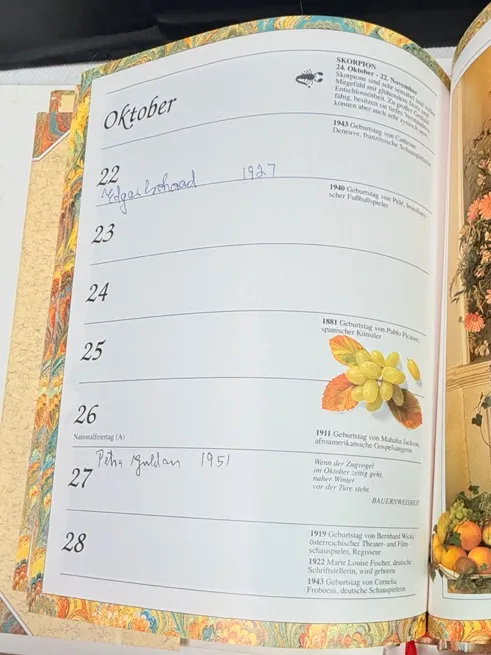 SKORPION
24. Oktober - 22. November
Skorpione sind sehr
Mitgefühl mit glühendem
Entschlossenheit. Zu großer
fähig, besitzen sie tiefes
können aber auch sehr zynisch sein.
Oktober
1943 Geburtstag von Catherine
Deneuve, französische Schauspielerin
22
1927
1940 Geburtstag von Pelé, brasiliani-
scher Fußballspieler
23
24
1881 Geburtstag von Pablo Picasso,
spanischer Künstler
25
26
Nationalfeiertag (A)
1911 Geburtstag von Mahalia Jackson,
afroamerikanische Gospelsängerin
Petra Guldan 1951
27
Wenn der Zugvogel
im Oktober zeitig geht,
naher Winter
vor der Türe steht.
BAUERNWEISHEIT
28
1919 Geburtstag von Bernhard Wicki,
österreichischer Theater- und Film-
schauspieler, Regisseur
1922 Marie Louise Fischer, deutsche
Schriftstellerin, wird geboren
1943 Geburtstag von Cornelia
Froboess, deutsche Schauspielerin